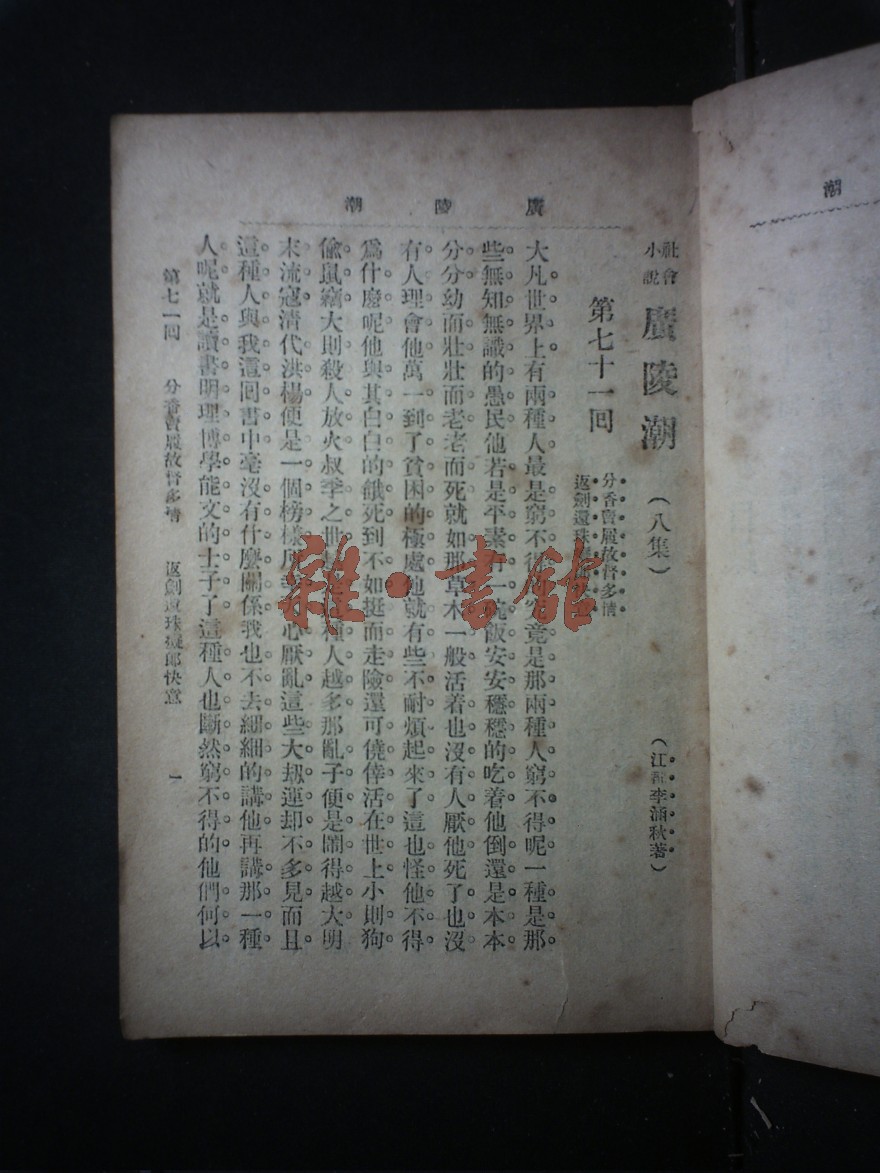 潮
廣陵潮
社會小說 廣陵潮 (八集) (江都李涵秋著)
第七十一回
分香賣履故督多情
返劍還珠
大凡世界上有兩種人最是窮不得的究竟是那兩種人窮不得呢一種是那
些無知無識的愚民他若是平素有一碗飯安安穩穩的吃着他倒還是本本
分分幼而壯壯而老老而死就如那草木一般活着也沒有人厭他死了也沒
有人理會他萬一到了貧困的極處他就有些不耐煩起來了這也怪他不得
爲什麽呢他與其白白的餓死到不如挺而走險還可僥倖活在世上小則狗
偸鼠竊大則殺人放火叔季之世這種人越多那亂子便是鬧得越大明
末流寇淸代洪楊便是一個榜樣所幸心厭亂這些大刼運却不多見而且
這種人與我這囘書中毫沒有什麽關係我也不去細細的講他再講那一種
人呢就是讀書明理博學能文的士子了這種人也斷然窮不得的他們何以
第七一囘 分香賣履故督多情 返劍還珠癡郎快意 一
雜·書館